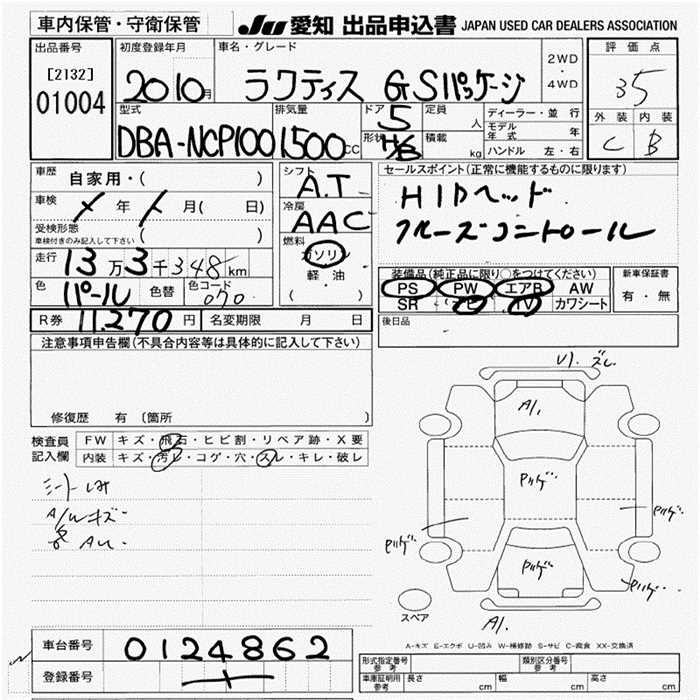 車内保管・守衛保管
JU 愛知 出品申込書 JAPAN USED CAR DEALERS ASSOCIATION
出品番号
[2132]
01004
初度登録年月
2010月
車名・グレード
ラクティス GSパッケージ
2WD
・
4WD
評価点
35
外装 内装
C B
型式
DBA-NCP100
排気量
1500CC
ドア 5
形状 H/B
定員 人
積載 kg
ディーラー・並行
モデル年式 年
ハンドル 左・右
車歴 自家用・( )
車検 年 月( 日)
受検形態
車検付きのみ記入して下さい ( )
走行 13万3千348km
色 パール 色替 色コード 070
R券 11,270円 名変期限 月 日
シフト
A.T
冷房
AAC
燃料
ガソリン
軽・油
( )
セールスポイント(正常に機能するものに限ります)
HIDヘッド
クルーズコントロール
装備品(純正品に限り○をつけてください)
PS PW エアB AW
SR ナビ TV カワシート
新車保証書
有・無
後日品
注意事項申告欄(不具合内容等は具体的に記入して下さい)
修復歴 有 〔箇所
検査員
記入欄
FW キズ・飛石・ヒビ割・リペア跡・X要
内装 キズ・汚レ・コゲ・穴・スレ・キレ・破レ
シートしみ
A/Wキズ
ズレ
A1
スペア
A1
A-キズ E-エクボ U-凹み W-補修跡 S-サビ C-腐食 XX-交換済
車台番号 0124862
登録番号
形式指定番号
参考
類別区分番号
参考
車庫証明用
参考
長さ cm 幅 cm 高さ cm